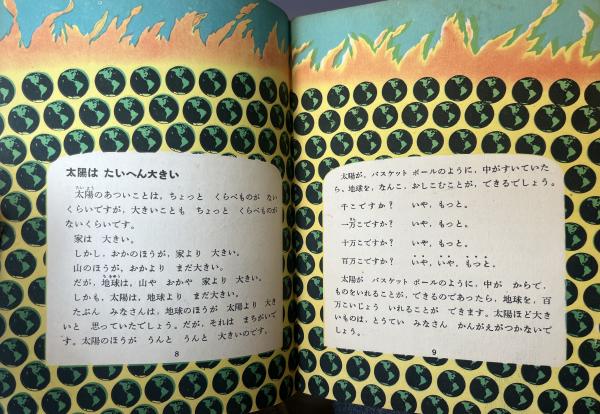 太陽は たいへん大きい
太陽のあついことは，ちょっと くらべものが ない
くらいですが，大きいことも ちょっと くらべもの
がないくらいです。
家は 大きい。
しかし，おかのほうが，家より 大きい。
山のほうが，おかより まだ大きい。
だが，地球は，山や おかや 家より 大きい。
しかも，太陽は，地球より まだ大きい。
たぶん みなさんは，地球のほうが 太陽より 大き
いと 思っていたでしょう。だが，それは まちがいで
す。太陽のほうが うんと うんと 大きいのです。
8
太陽が，バスケット ボールのように，中がすいていた
ら，地球を，なんこ，おしこむことが，できるでしょう。
千こですか？ いや，もっと。
一万こですか？ いや，もっと。
十万こですか？ いや，もっと。
百万こですか？ いや，いや，もっと。
太陽が バスケット ボールのように，中が からで，
ものをいれることが，できるのであったら，地球を，百
万こいじょう いれることが できます。太陽ほど大き
いものは，とうてい みなさん かんがえがつかないで
しょう。
9